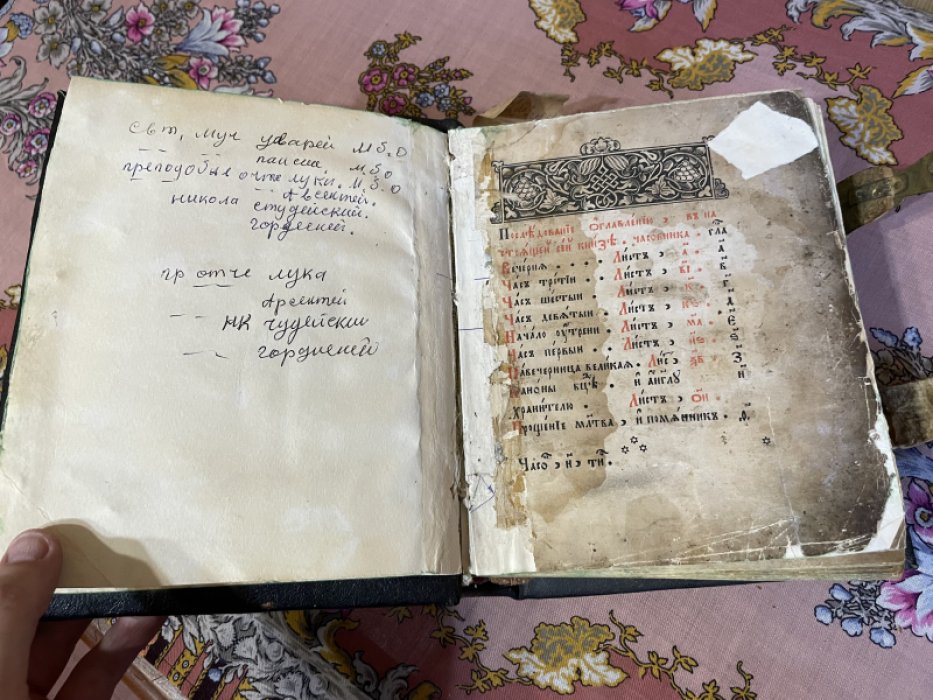 свт, муч уварей М.Б.О
паисеи М.Б.О
преподобые отче луки. М.Б.О
никола Авсентей.
студейский.
гордеений.
пр отче лука
Арсентей
НК чудейский
гордиеней
Послѣдованїе ѻглавленїю , въ на
стоящей сей книзѣ . часовника . гла
Вечерня . . . . Листъ , а҃ . а҃
Часъ третїи . Листъ , в҃і . в҃
Часъ шестыи . Листъ , к҃ . г҃
Часъ девѧтыи . Листъ ,
Начало оутрени . Листъ , м҃а . е҃
Часъ первыи . . Листъ , н҃ѕ . ѕ҃
Павечерница великая . Лис , . з҃
Каноны бцѣ . и агг҃лу и҃
хранителю . Листъ , о҃и .
Прощенїе млтва , и помѧнникъ .
Часо , н , ти .